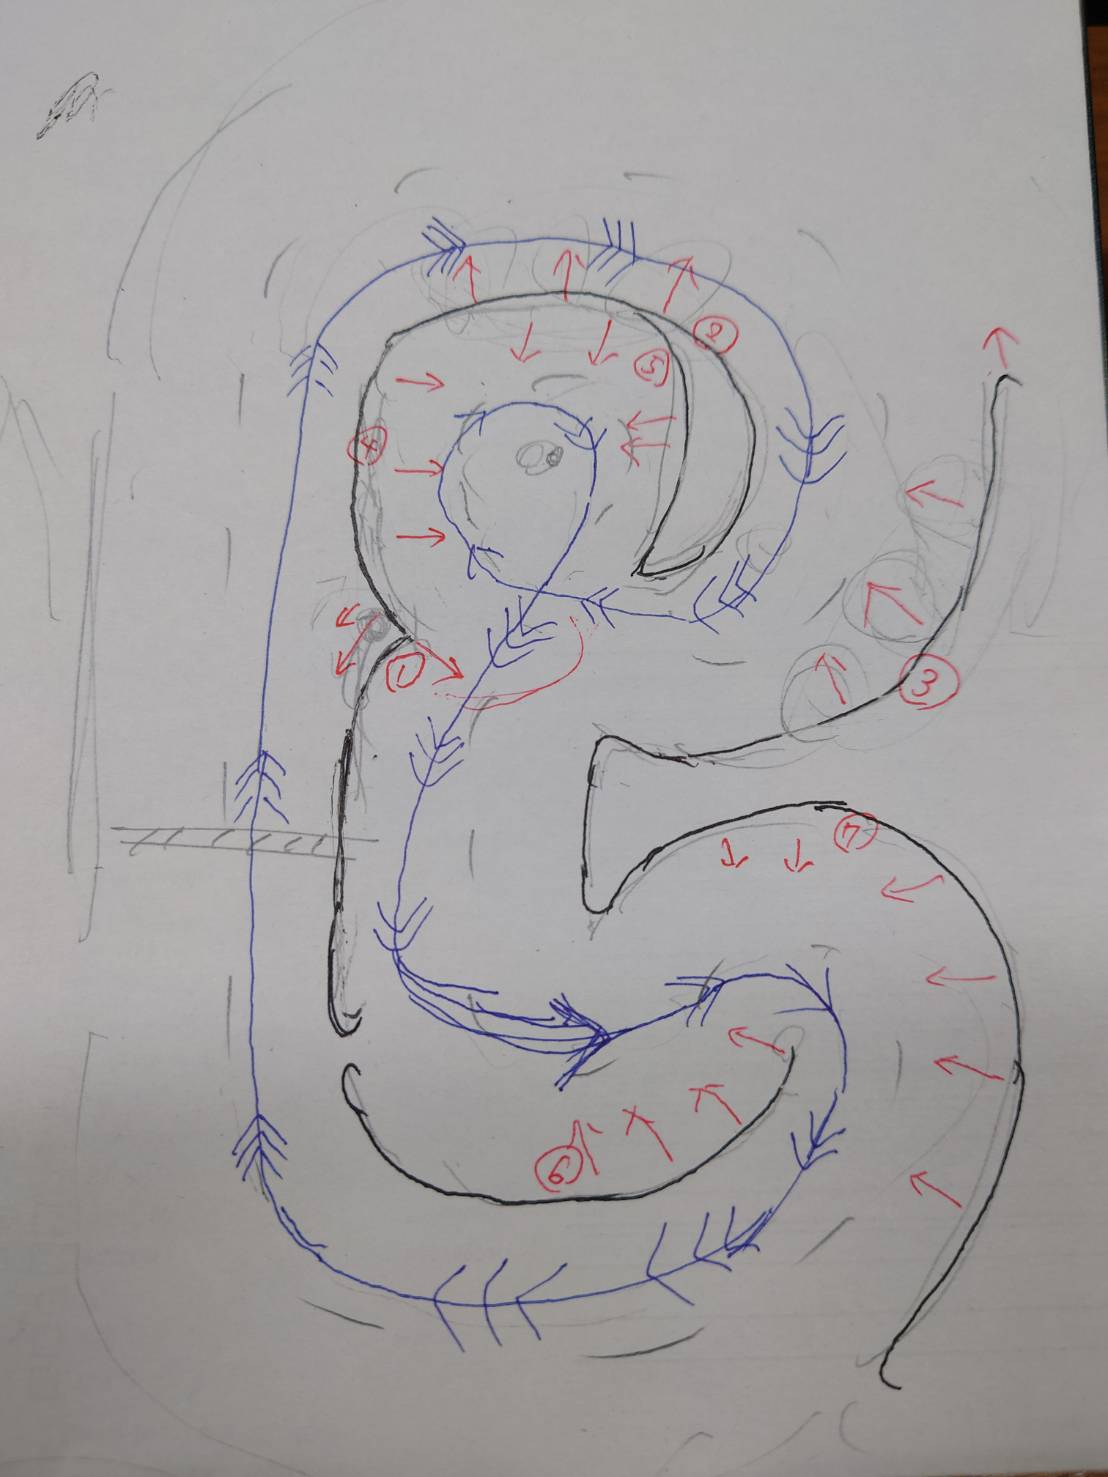 2
5
4
1
3
7
6